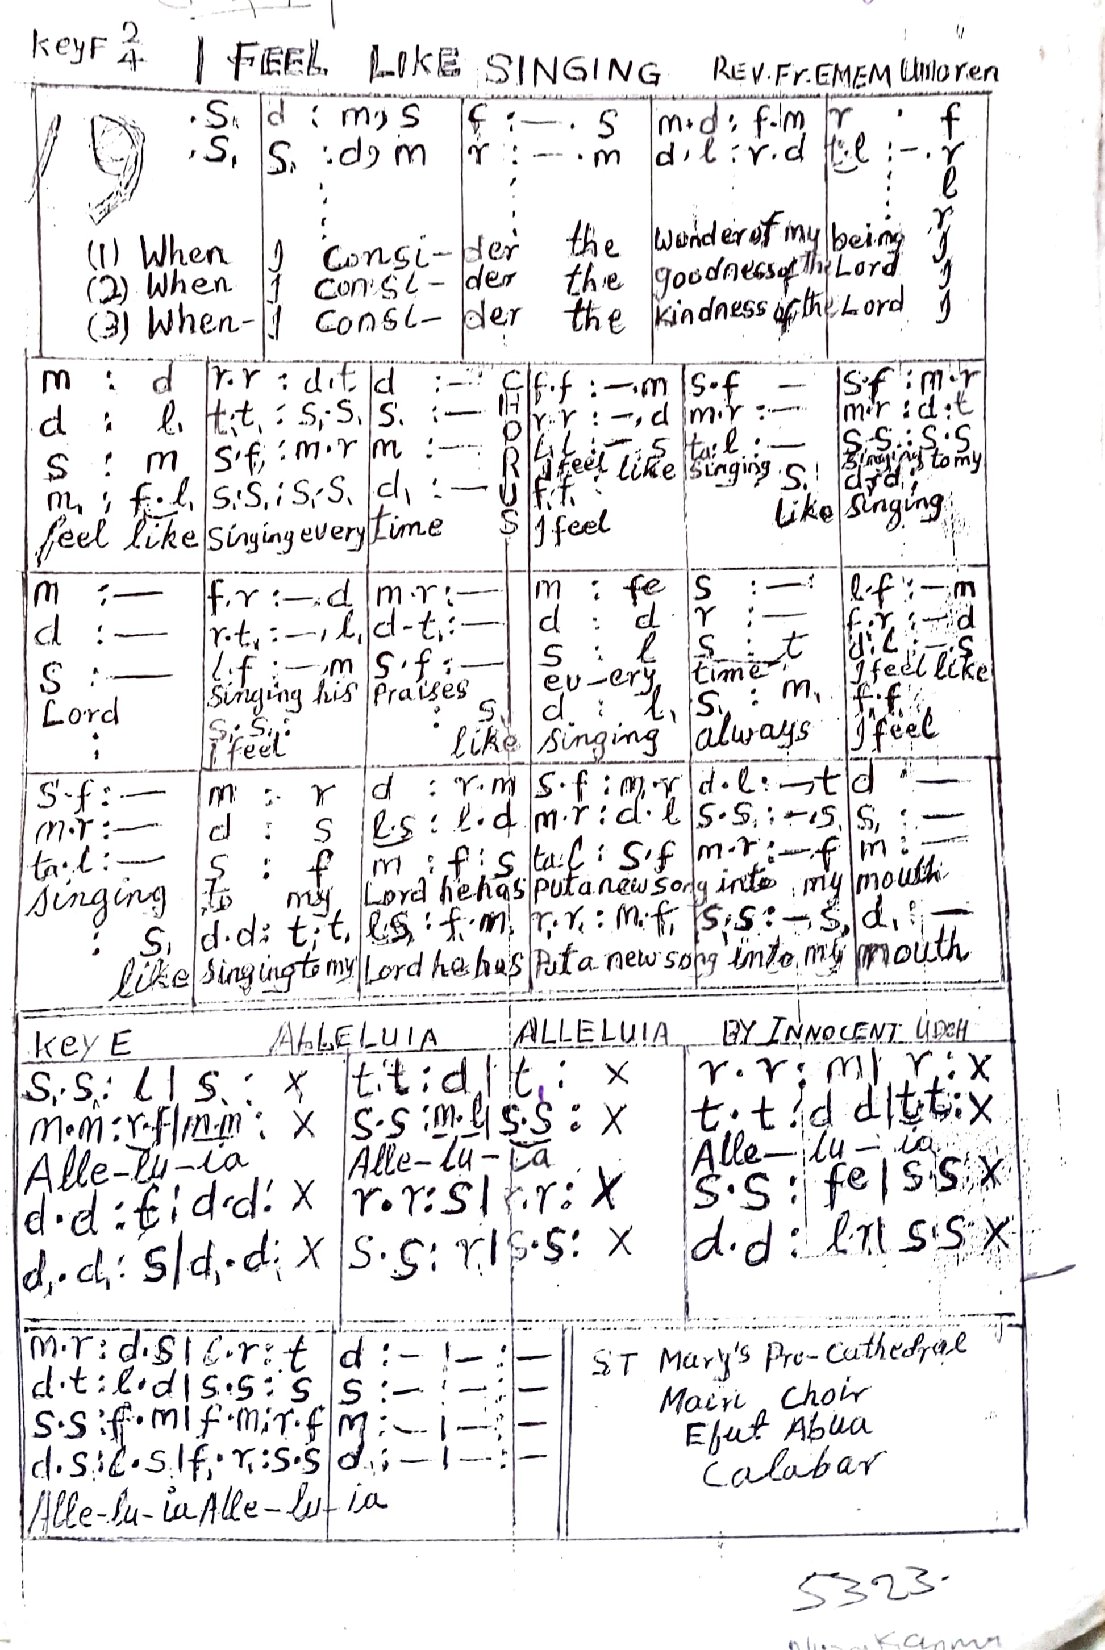 Key F 2/4 I FEEL LIKE SINGING REV. Fr. EMEM
19
.S, d : m, s f : — . s m.d : f.m r . f
.S, S, : d, m r : — . m d.l : r.d t.l : — . r
l
r
(1) When I consi- der the wonder of my being I
(2) When I consi- der the goodness of the Lord I
(3) When- I consi- der the kindness of the Lord I
CHORUS
m : d r.r : d.t d : — f.f : —.m s.f — s.f : m.r
d : l, t,.t, : s,.s, s, : — r.r : —.d m.r : — m.r : d.t
s : m s.f : m.r m : — l.l : —.s ta.l : — s.s : s.s
I feel like singing singing to my
m, : f.l, s,.s, : s,.s, d, : — f.f : s, d.d :
feel like singing every time I feel like singing
m : — f.r : —.d m.r : — m : fe s : — l.f : —.m
d : — r.t, : —.l, d-t, : — d : d r : — f.r : —.d
s : — l.f : —.m s.f : — s : l s : t d.l : —.s
Lord singing his praises ev-ery time I feel like
: s,.s, : : s, d : l, s, : m, f.f
I feel like singing always I feel
s.f : — m : r d : r.m s.f : m.r d.l : —.t d : —
m.r : — d : s l.s : l.d m.r : d.l s.s, : —.s, s, : —
ta.l : — s : f m : f : s ta.l : s.f m.r : —.f m : —
singing to my Lord he has put a new song into my mouth
: s, d.d : t,.t, l,.s, : f.m, r.r : m.f, s,.s : —.s, d, : —
like singing to my Lord he has put a new song into my mouth
key E ALLELUIA ALLELUIA BY INNOCENT UDOH
s.s : l | s. : x t.t : d | t. : x r.r : m | r. : x
m.m : r.f | m.m : x s.s : m.l | s.s : x t.t : d d | t.t : x
Alle-lu-ia Alle-lu-ia Alle-lu-ia
d.d : f : d.d : x r.r : s | r.r : x s.s : fe | s.s x
d,.d, : s | d,.d, : x s.s : r | s.s : x d.d : l.r | s.s x
m.r : d.s | l.r : t d : — | — : —
d.t : l.d | s.s : s s : — | — : —
s.s : f.m | f.m : r.f m : — | — : —
d.s : l.s | f,.r, : s.s d, : — | — : —
Alle-lu-ia Alle-lu-ia
ST Mary's Pro-Cathedral
Main Choir
Efut Abua
Calabar
5323.